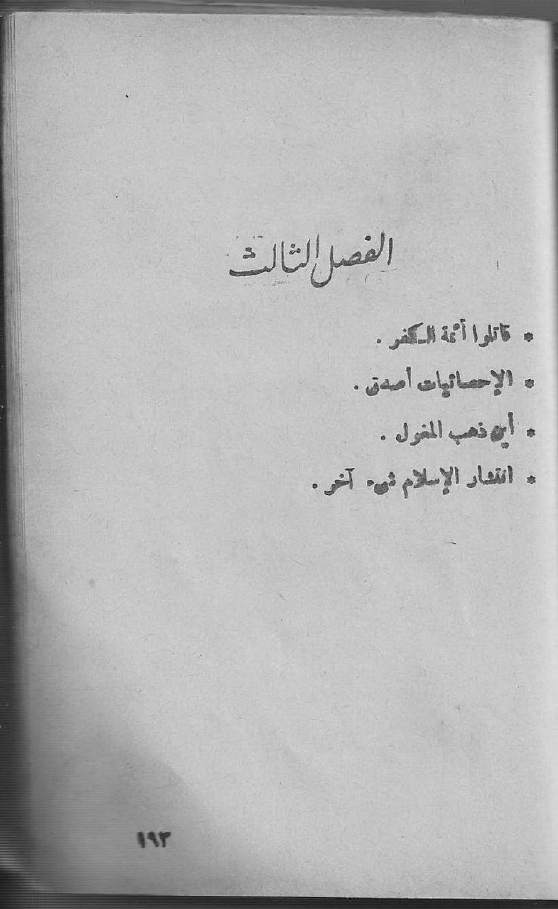 الفصل الثالث
* قاتلوا أئمة الكفر .
* الإحصائيات أصدق .
* أين ذهب المغول .
* انتشار الإسلام شيء آخر .
١٩٣